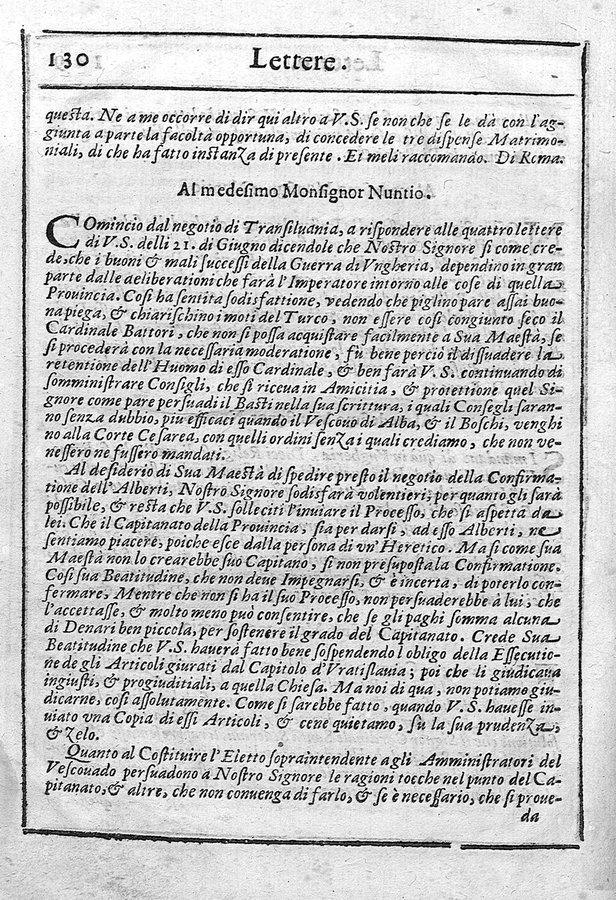 130 Lettere.
questa. Ne a me occorre di dir qui altro a V.S. se non che se le dà con l'ag-
giunta a parte la facoltà opportuna, di concedere le tre dispense Matrimo-
niali, di che ha fatto instanza di presente. Et meli raccomando. Di Roma.
Al medesimo Monsignor Nuntio.
COmincio dal negotio di Transiluania, a rispondere alle quattro lettere
di V.S. delli 21. di Giugno dicendole che Nostro Signore si come cre-
de, che i buoni & mali successi della Guerra di Vngheria, dependino in gran
parte dalle aeliberationi che farà l'Imperatore intorno alle cose di quella
Prouincia. Cosi ha sentita sodisfattione, vedendo che piglino pare assai buo-
na piega, & chiarischino i moti del Turco, non essere cosi congiunto seco il
Cardinale Battori, che non si possa acquistare facilmente a Sua Maestà, se
si procederà con la necessaria moderatione, fù bene perciò il dissuadere la
retentione dell'Huomo di esso Cardinale, & ben farà V.S. continuando di
somministrare Consigli, che si riceua in Amicitia, & protettione quel Si-
gnore come pare persuadi il Basti nella sua scrittura, i quali Consegli saran-
no senza dubbio, più efficaci quando il Vescouo di Alba, & il Boschi, venghi
no alla Corte Cesarea, con quelli ordini senza i quali crediamo, che non ve-
nessero ne fussero mandati.
Al desiderio di Sua Maestà di spedire presto il negotio della Confirma-
tione dell'Alberti, Nostro Signore sodisfarà volentieri, per quanto gli sarà
possibile, & resta che V.S. solleciti l'inuiare il Processo, che si aspetta da
lei. Che il Capitanato della Prouincia, sia per darsi, ad esso Alberti, ne
sentiamo piacere, poiche esce dalla persona di vn'Heretico. Ma si come sua
Maestà non lo crearebbe suo Capitano, si non presuposta la Confirmatione.
Cosi sua Beatitudine, che non deue Impegnarsi, & è incerta, di poterlo con-
fermare, Mentre che non si ha il suo Processo, non persuaderebbe à lui, che
l'accettasse, & molto meno può consentire, che se gli paghi somma alcuna
di Denari ben piccola, per sostenere il grado del Capitanato. Crede Sua
Beatitudine che V.S. hauerà fatto bene sospendendo l obligo della Essecutio-
ne de gli Articoli giurati dal Capitolo d'Vratislauia; poi che li giudicaua
ingiusti, & progiuditiali, a quella Chiesa. Ma noi di qua, non potiamo giu-
dicarne, cosi assolutamente. Come si sarebbe fatto, quando V.S. hauesse in-
uiato vna Copia di essi Articoli, & cene quietamo, sù la sua prudenza,
& zelo.
Quanto al Costituire l'Eletto sopraintendente agli Amministratori del
Vescouado persuadono a Nostro Signore le ragioni tocche nel punto del Ca-
pitanato, & altre, che non conuenga di farlo, & se è necessario, che si proue-
da